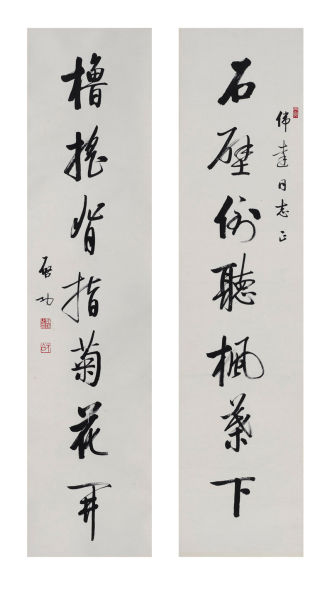 石壁倒聽楓葉下
偉達同志正
櫓搖背指菊花開
啓功